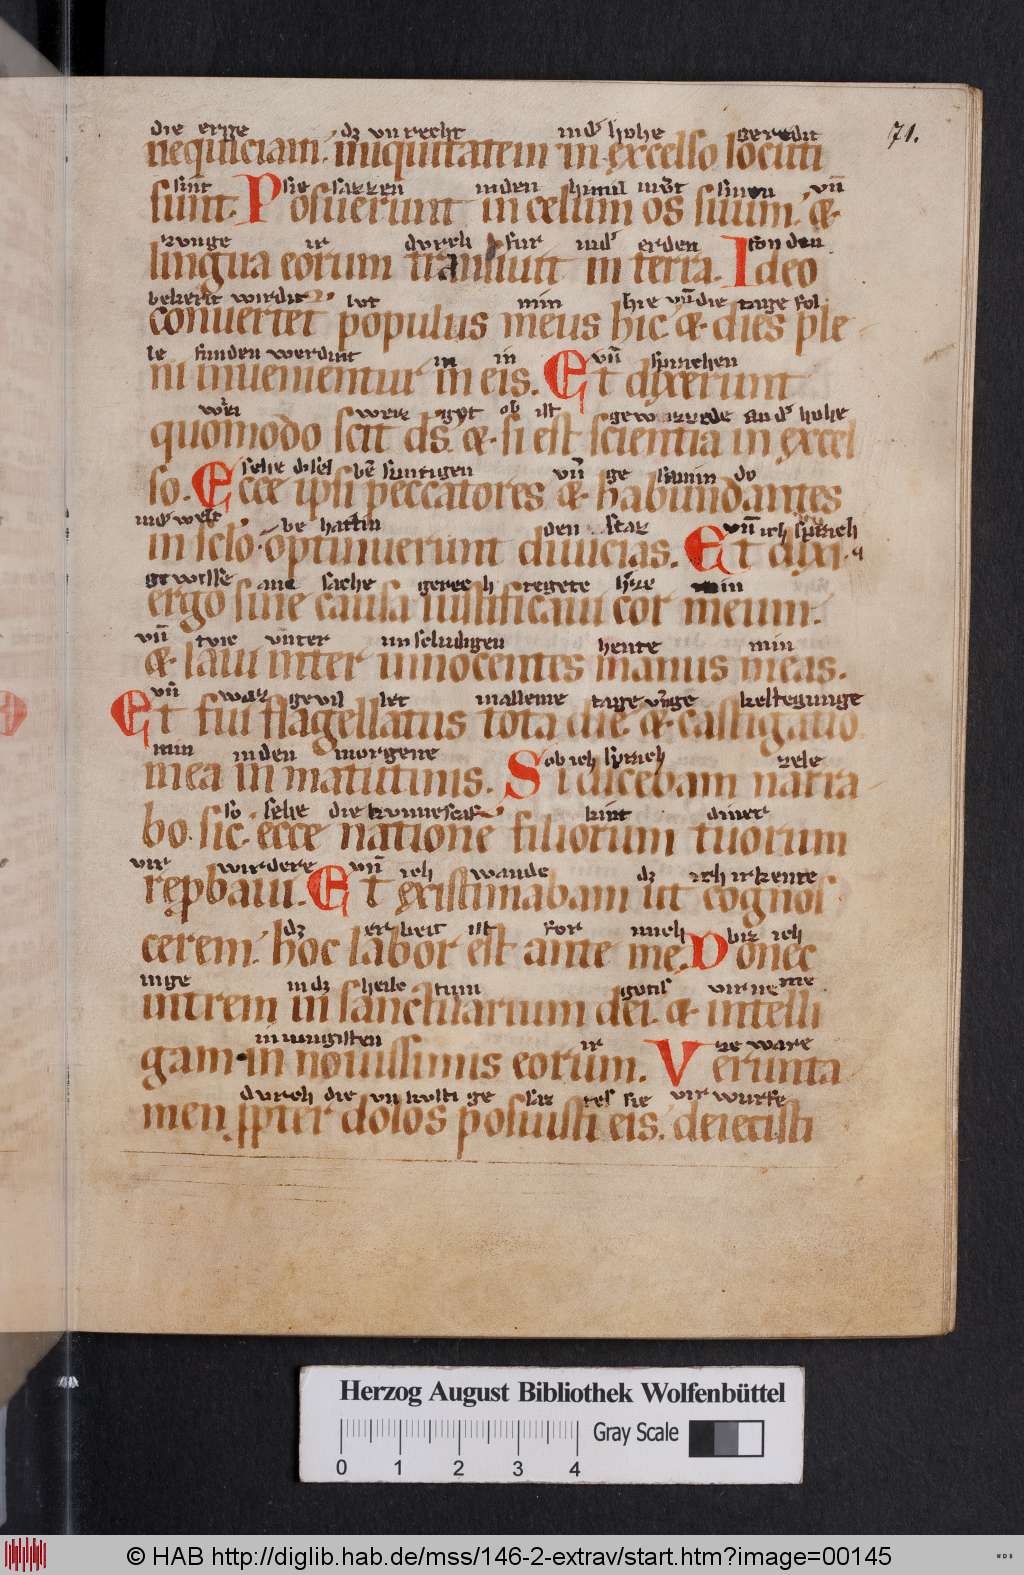 71.
die erge dz vnrecht in dͦ hohe geredit
nequiciam. iniquitatem in excelso locuti
sint sie sazzen in den himil iren munt vn̄
sunt. Posuerunt in celum os suum. &
zunge ir durch fur in dͦ erden fon den
lingua eorum transiuit in terra. Ideo
bekerit wirdit lut min hie vn̄ die tage fol
conuertet populus meus hic. & dies ple
le funden werdint in in vn̄ sprachen
ni inuenientur in eis. Et dixerunt
wi weiz got ob ist an dͦ hohe
quomodo scit ds̄. & si est scientia in excel
sehe disel vn̄
so. Ecce ipsi peccatores & habundantes
in dͦ welt be hattin den vn̄ ich sprach
in sclo. optinuerunt diuicias. Et dixi.
gewisse ane sache h̄ze min
ergo sine causa iustificaui cor meum.
vn̄ vnter unschuldigen hente min
& laui inter innocentes manus meas.
vn̄ waz alleme tage kestegunge
Et fui flagellatus tota die. & castigatio
min in den morgene ob ich sprach zele
mea in matutinis. Si dicebam narra
so sehe die kint diner
bo. sic. ecce natione filiorum tuorum
vir wirdere vn̄ ich wande dz ich irkente
repbaui. Et existimabam ut cognos
dz erbeit ist for mich biz ich
cerem. hoc labor est ante me. Donec
inge in dz heilctum gotis virneme
intrem in sanctuarium dei. & intelli
in iungisten ir ze ware
gam in nouissimis eorum. Verunta
durch die vnkusti ge saz tes sie vir wurfe
men ꝓpter dolos posuisti eis. deiecisti
Herzog August Bibliothek Wolfenbüttel
Gray Scale
0 1 2 3 4
© HAB http://diglib.hab.de/mss/146-2-extrav/start.htm?image=00145